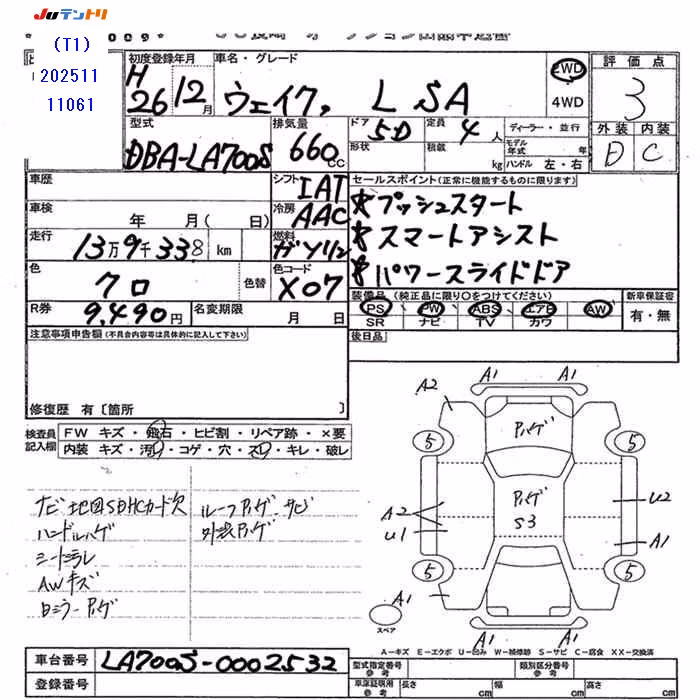 Juテントリ
(T1)
202511
11061
初度登録年月 車名・グレード 評価点
H 26 12月 ウェイク, L SA 2WD 4WD 3
外装 内装
D C
型式 排気量 ドア 5D 定員 4人 ディーラー・並行
DBA-LA700S 660cc 形状 積載 kg モデル年式 年 ハンドル 左・右
車歴 シフト IAT セールスポイント(正常に機能するものに限ります)
車検 年 月( 日) 冷房 AAC *プッシュスタート
走行 13万9千338km 燃料 ガソリン *スマートアシスト
色 クロ 色替 色コード X07 *パワースライドドア
R券 9,490円 名変期限 月 日
装備品(純正品に限り○をつけてください) 新車保証書
PS PW ABS エアB AW 有・無
SR ナビ TV カワ
注意事項申告欄(不具合内容等は具体的に記入して下さい) 後日品
修復歴 有〔箇所 〕
検査員記入欄 FW キズ・飛石・ヒビ割・リペア跡・×要
内装 キズ・汚レ・コゲ・穴・スレ・キレ・破レ
ナビ地図SDHCカード欠 ルーフハゲ・サビ
ハンドルハゲ 外装ハゲ
シートスレ
AWキズ
A1 A1
A2
5 5
A2 U2
S3
U1 A1
5 5
A1
スペア
A1 A1
A-キズ E-エクボ U-凹み W-補修跡 S-サビ C-腐食 XX-交換済
車台番号 LA700S-0002532 型式指定番号 参考 類別区分番号 参考
登録番号 車庫証明用 参考 長さ cm 幅 cm 高さ cm